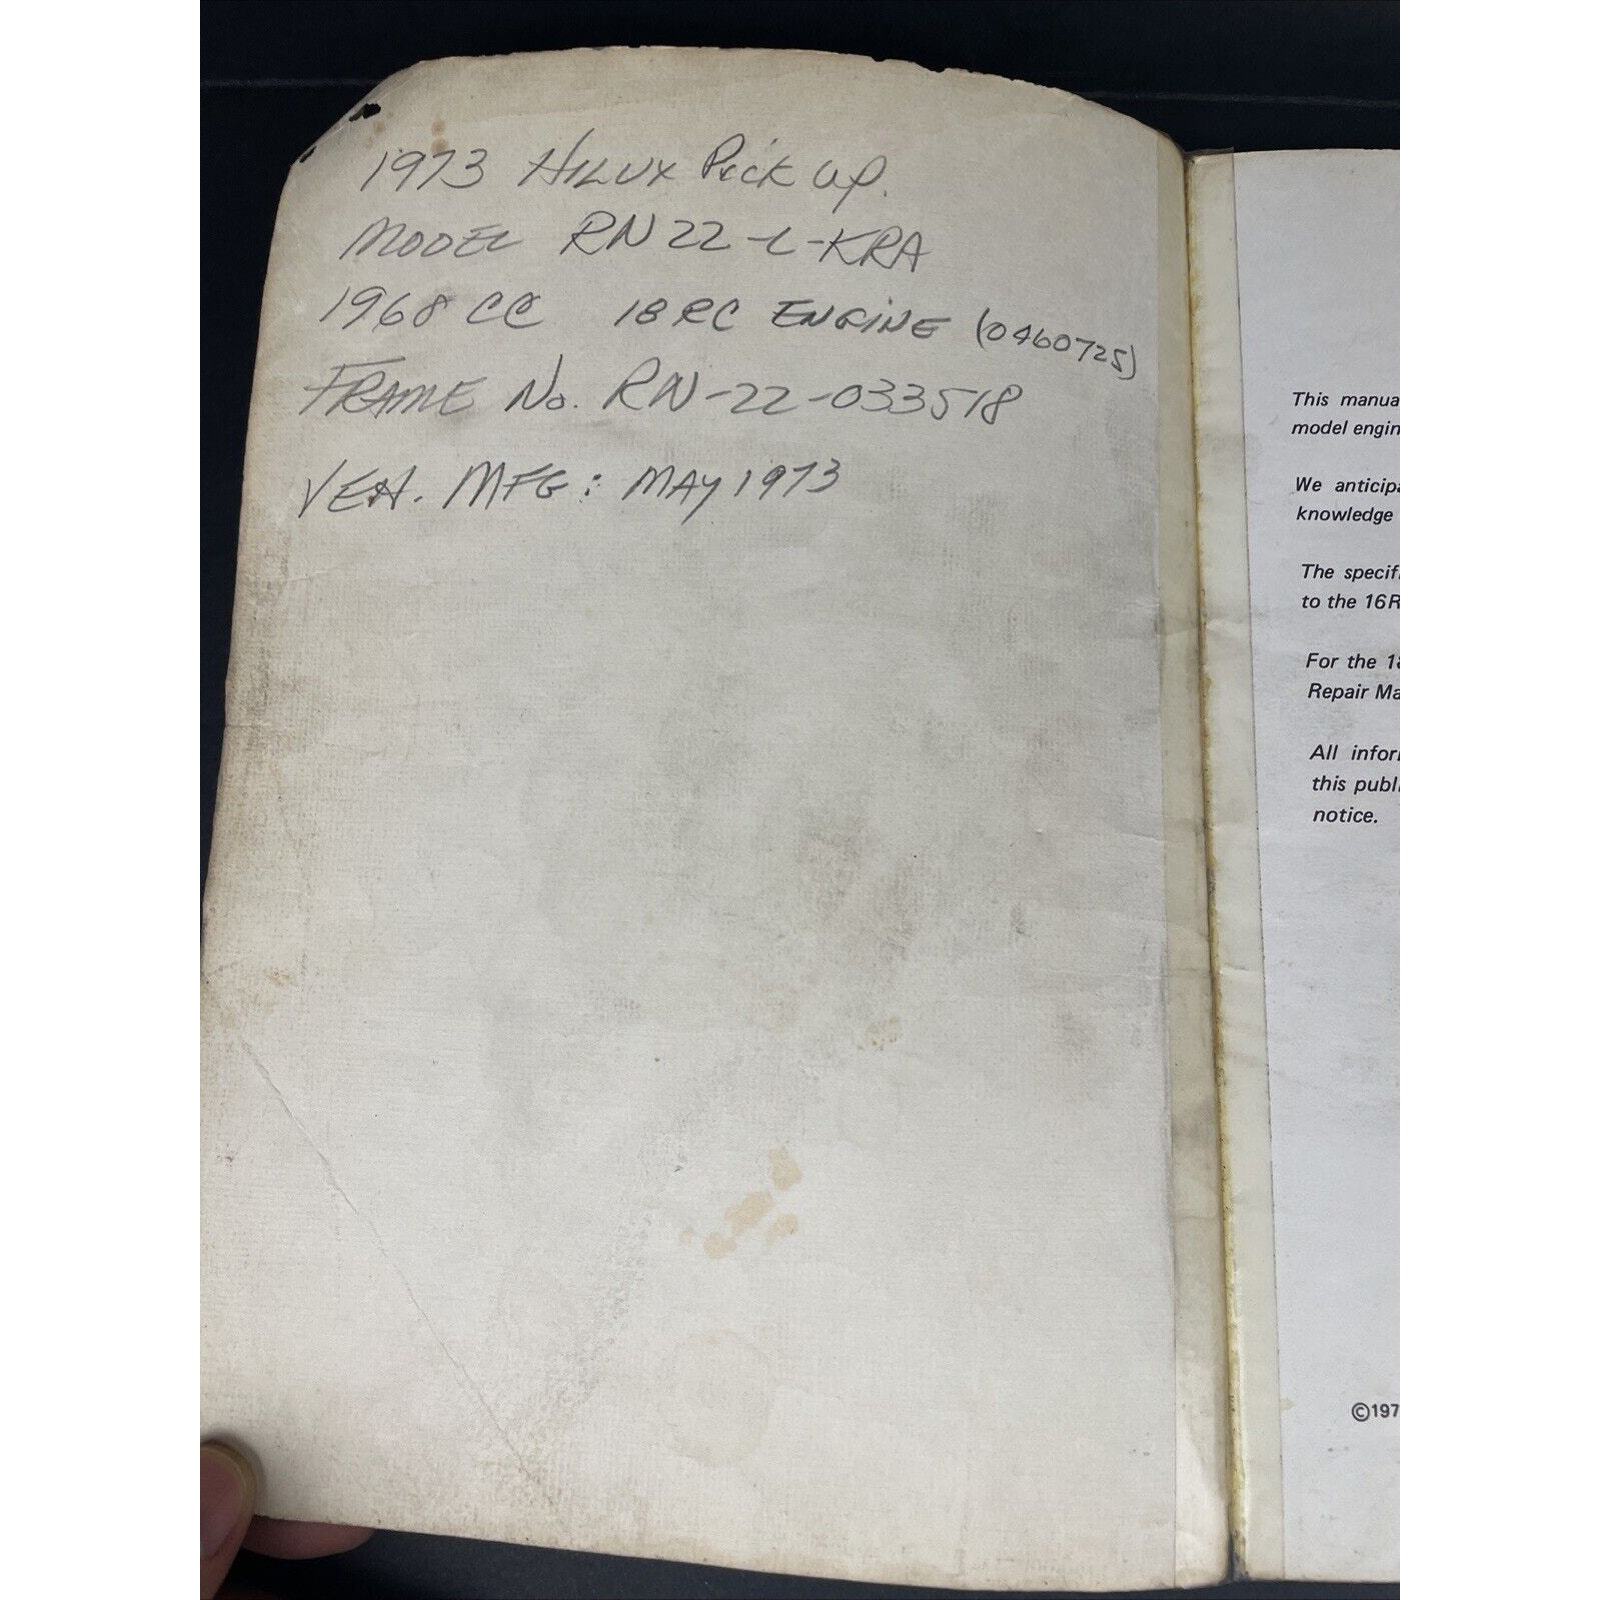 1973 HILUX Pick Up.
MODEL RN22-L-KRA
1968 CC 18RC ENGINE (0460725)
FRAME No. RN-22-033518
VEH. MFG: MAY 1973
This manua
model engin
We anticipa
knowledge
The specifi
to the 16R
For the 18
Repair Ma
All infor
this publi
notice.
©197